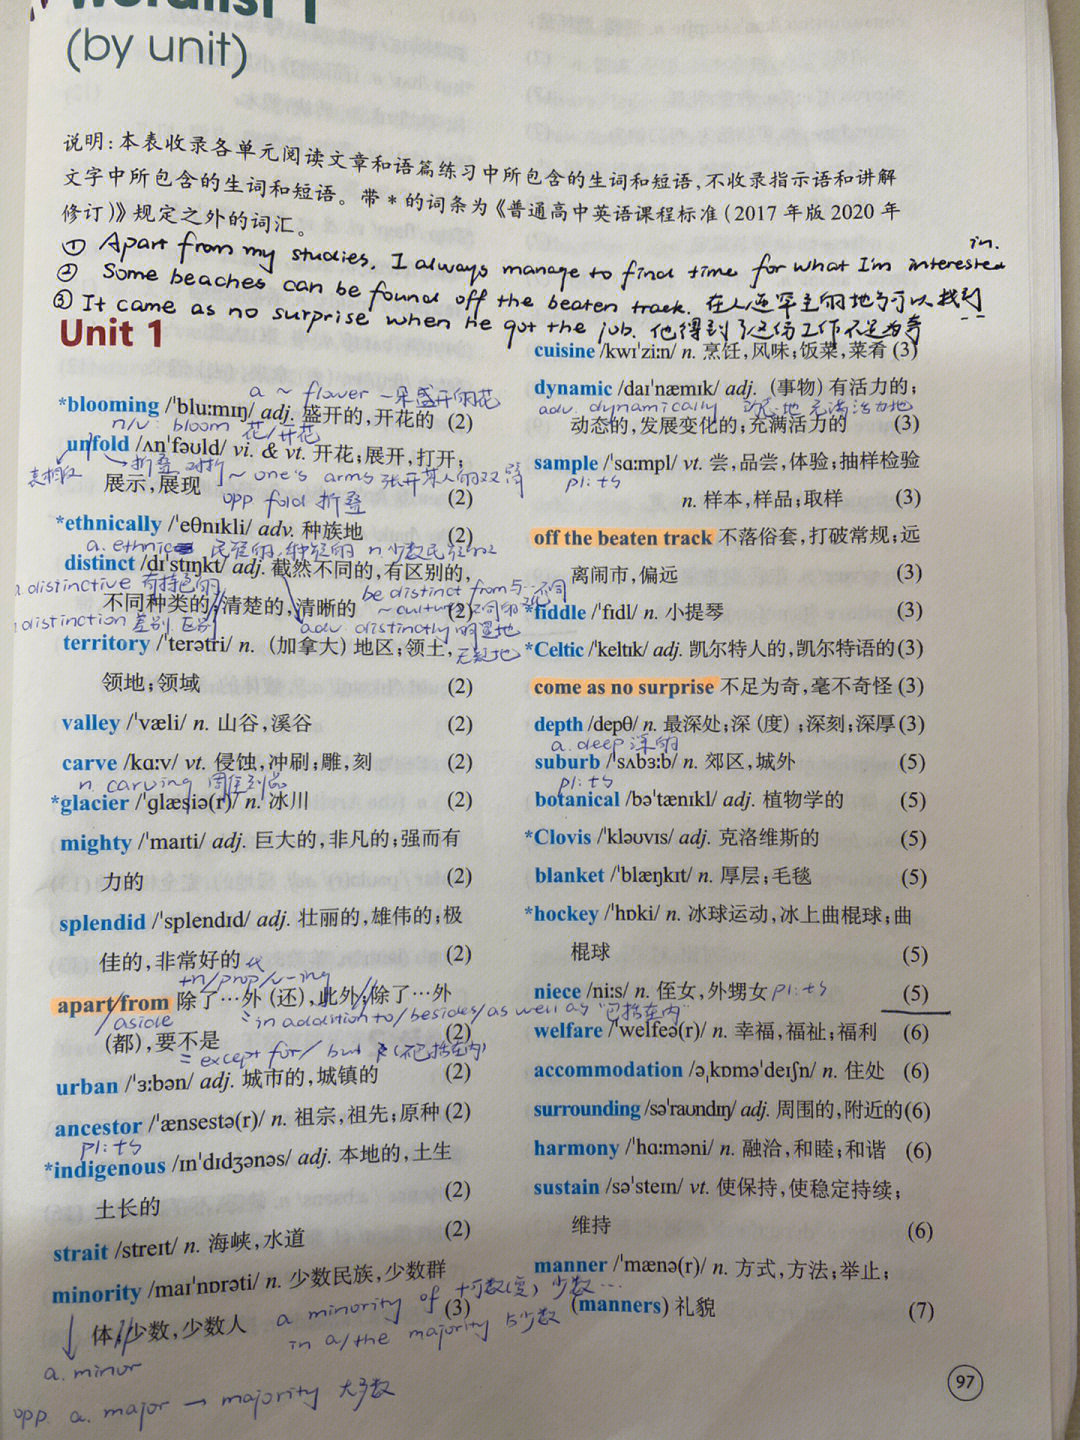 Wordlist 1
(by unit)
说明:本表收录各单元阅读文章和语篇练习中所包含的生词和短语,不收录指示语和讲解
文字中所包含的生词和短语。带 * 的词条为《普通高中英语课程标准(2017 年版 2020 年
修订)》规定之外的词汇。
① Apart from my studies, I always manage to find time for what I'm interested in.
② Some beaches can be found off the beaten track. 在人迹罕至的地方可以找到
③ It came as no surprise when he got the job. 他得到了这份工作不足为奇
Unit 1
a ~ flower 一朵盛开的花
*blooming /ˈbluːmɪŋ/ adj. 盛开的,开花的 (2)
n/v. bloom 花/开花
unfold /ʌnˈfəʊld/ vi. & vt. 开花;展开,打开;
表相反 折叠 对折 ~ one's arms 张开某人的双臂
展示,展现 (2)
opp fold 折叠
*ethnically /ˈeθnɪkli/ adv. 种族地 (2)
a. ethnic 民族的,种族的
distinct /dɪˈstɪŋkt/ adj. 截然不同的,有区别的,
a. distinctive 有特色的 be distinct from 与…不同
不同种类的;清楚的,清晰的 (2)
distinction 差别,区别 adv. distinctly 明显地
无疑地
territory /ˈterətri/ n. (加拿大) 地区;领土,
领地;领域 (2)
valley /ˈvæli/ n. 山谷,溪谷 (2)
carve /kɑːv/ vt. 侵蚀,冲刷;雕,刻 (2)
n. carving
*glacier /ˈɡlæsiə(r)/ n. 冰川 (2)
mighty /ˈmaɪti/ adj. 巨大的,非凡的;强而有
力的 (2)
splendid /ˈsplendɪd/ adj. 壮丽的,雄伟的;极
佳的,非常好的 (2)
+n/prop/v-ing
apart from 除了…外 (还),此外;除了…外
/aside = in addition to/besides/as well as "包括在内"
(都),要不是 (2)
= except for/ but (不包括在内)
urban /ˈɜːbən/ adj. 城市的,城镇的 (2)
ancestor /ˈænsestə(r)/ n. 祖宗,祖先;原种 (2)
pl: +s
*indigenous /ɪnˈdɪdʒənəs/ adj. 本地的,土生
土长的 (2)
strait /streɪt/ n. 海峡,水道 (2)
minority /maɪˈnɒrəti/ n. 少数民族,少数群
体;少数,少数人 (3)
a minority of +可数(复) 少数…
in a/the majority 占多数
a. minor
opp. a. major → majority 大多数
cuisine /kwɪˈziːn/ n. 烹饪,风味;饭菜,菜肴 (3)
dynamic /daɪˈnæmɪk/ adj. (事物) 有活力的;
adv. dynamically 动态地 充满活力地
动态的,发展变化的;充满活力的 (3)
sample /ˈsɑːmpl/ vt. 尝,品尝,体验;抽样检验
pl: +s
n. 样本,样品;取样 (3)
off the beaten track 不落俗套,打破常规;远
离闹市,偏远 (3)
*fiddle /ˈfɪdl/ n. 小提琴 (3)
*Celtic /ˈkeltɪk/ adj. 凯尔特人的,凯尔特语的 (3)
come as no surprise 不足为奇,毫不奇怪 (3)
depth /depθ/ n. 最深处;深 (度) ;深刻;深厚 (3)
a. deep 深的
suburb /ˈsʌbɜːb/ n. 郊区,城外 (5)
pl: +s
botanical /bəˈtænɪkl/ adj. 植物学的 (5)
*Clovis /ˈkləʊvɪs/ adj. 克洛维斯的 (5)
blanket /ˈblæŋkɪt/ n. 厚层;毛毯 (5)
*hockey /ˈhɒki/ n. 冰球运动,冰上曲棍球;曲
棍球 (5)
niece /niːs/ n. 侄女,外甥女 pl: +s (5)
welfare /ˈwelfeə(r)/ n. 幸福,福祉;福利 (6)
accommodation /əˌkɒməˈdeɪʃn/ n. 住处 (6)
surrounding /səˈraʊndɪŋ/ adj. 周围的,附近的 (6)
harmony /ˈhɑːməni/ n. 融洽,和睦;和谐 (6)
sustain /səˈsteɪn/ vt. 使保持,使稳定持续;
维持 (6)
manner /ˈmænə(r)/ n. 方式,方法;举止;
(manners) 礼貌 (7)
97